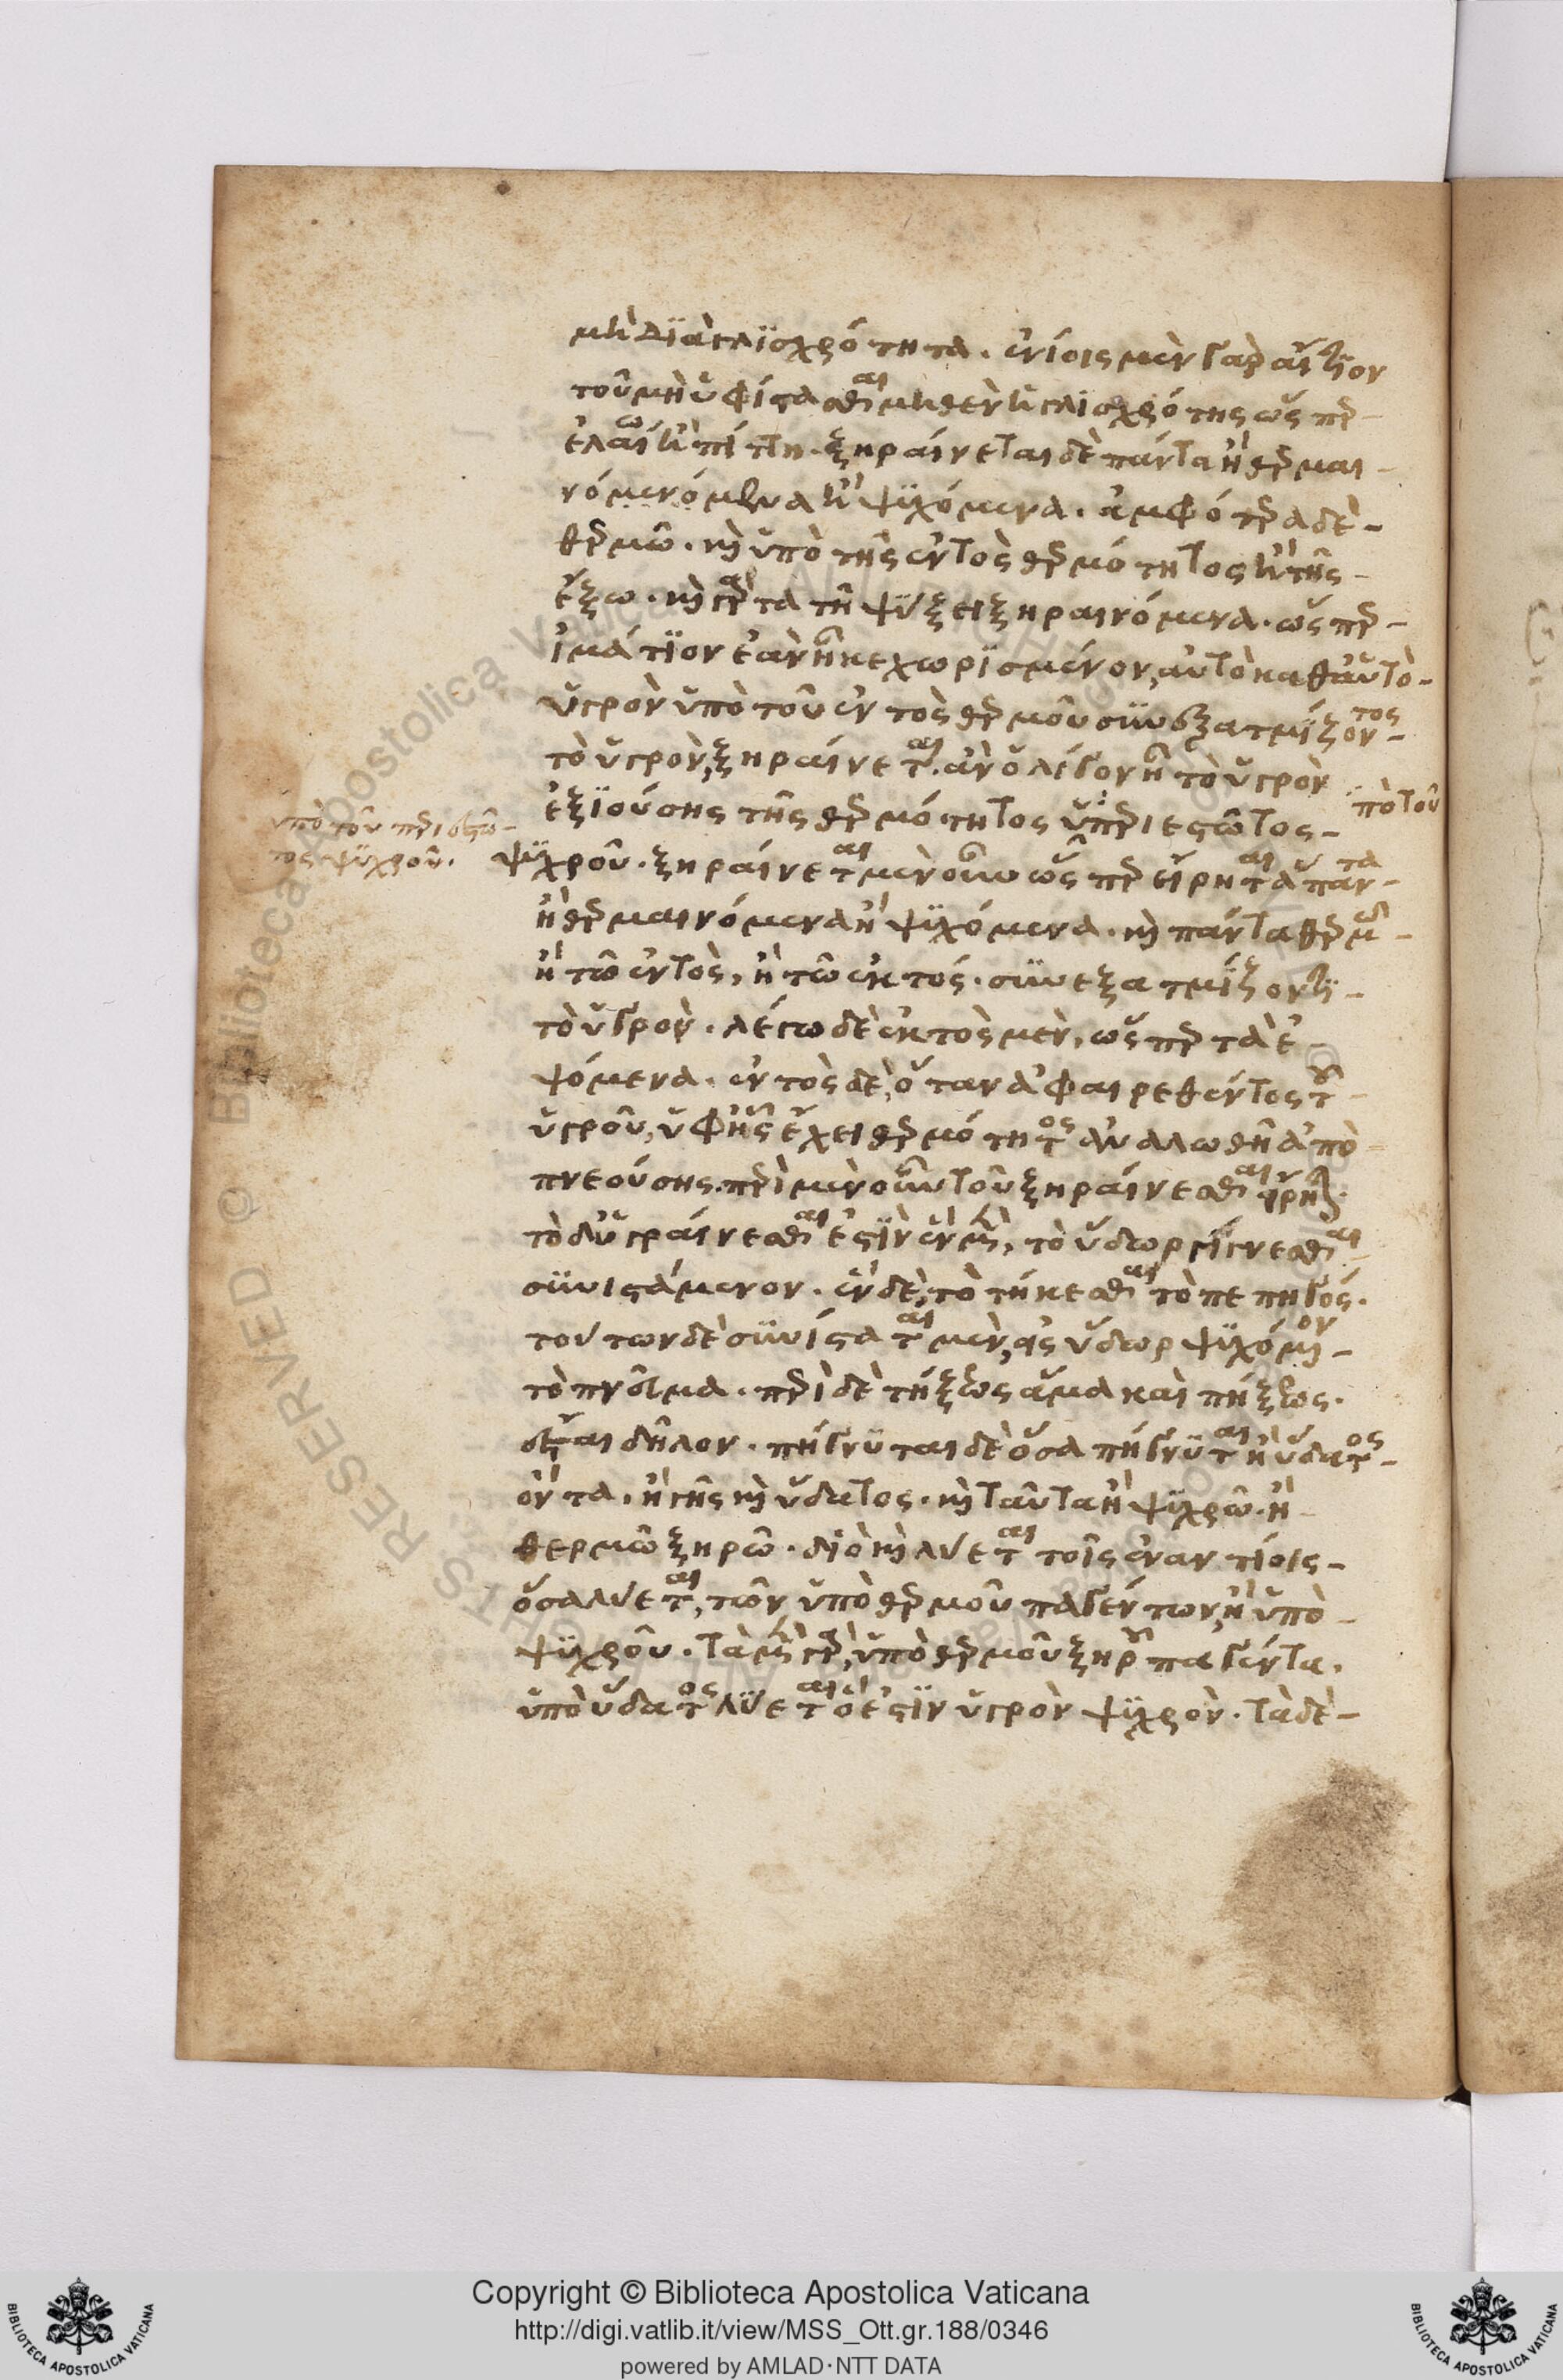 μὴ διὰ γλισχρότητα. ἐνίοις μὲν γὰρ αἴτιον
τοῦ μὴ ὑφίστασθαι μηθὲν ἡ γλισχρότης ὥσπερ
ἐλαίω ἢ πίττη. ξηραίνεται δὲ πάντα ἢ θερμαι-
νόμενόμενα ἢ ψυχόμενα. ἀμφότερα δὲ
θερμῶ. καὶ ὑπὸ τῆς ἐντὸς θερμότητος ἢ τῆς
ἔξω. καὶ γὰρ τὰ τῆ ψύξει ξηραινόμενα. ὥσπερ
ἱμάτιον ἐὰν ἦ κεχωρισμένον, αὐτὸ καθ' αὑτὸ
ὑγρὸν ὑπὸ τοῦ ἐντὸς θερμοῦ συνεξατμίζοντος
τὸ ὑγρὸν, ξηραίνεται. ἂν ὀλίγον ἦ τὸ ὑγρὸν
ἐξιούσης τῆς θερμότητος ὑπεριεστῶτος
ψυχροῦ. ξηραίνεται μὲν οὖν ὥσπερ εἴρηται ἅπαντα
ἢ θερμαινόμενα ἢ ψυχόμενα. καὶ πάντα θερμῶ
ἢ τῶ ἐντὸς, ἢ τῶ ἐκτός. συνεξατμίζοντι
τὸ ὑγρὸν. λέγω δὲ ἐκτὸς μὲν, ὥσπερ τὰ ἑ-
ψόμενα. ἐντὸς δὲ, ὅταν ἀφαιρεθέντος τοῦ
ὑγροῦ, ὑφ' ἧς ἔχει θερμότητος ἀναλωθῆ ἀπο
πνεούσης. περὶ μὲν οὖν τοῦ ξηραίνεσθαι εἴρηται.
τὸ δ' ὑγραίνεσθαι ἐστὶν ἓν μὲν, τὸ ὕδωρ γίγνεσθαι
συνιστάμενον. ἓν δὲ, τὸ τήκεσθαι τὸ πεπηγός.
τούτων δὲ συνίσταται μὲν, εἰς ὕδωρ ψυχόμενον
τὸ πνεῦμα. περὶ δὲ τήξεως ἅμα καὶ πήξεως.
ἔσται δῆλον. πήγνυται δὲ ὅσα πήγνυται ἢ ὕδατος
ὄντα. ἢ γῆς καὶ ὕδατος. καὶ ταῦτα ἢ ψυχρῶ. ἢ
θερμῶ ξηρῶ. διὸ καὶ λύεται τοῖς ἐναντίοις
ὅσα λύεται, τῶν ὑπὸ θερμοῦ παγέντων, ἢ ὑπὸ
ψυχροῦ. τὰ μὲν γὰρ, ὑπὸ θερμοῦ ξηροῦ παγέντα.
ὑπὸ ὕδατος λύεται ὅ ἐστὶν ὑγρὸν ψυχρὸν. τὰ δὲ
πὸ τοῦ
ὑπὸ τοῦ περιεστῶ-
τος ψυχροῦ.
Copyright © Biblioteca Apostolica Vaticana
http://digi.vatlib.it/view/MSS_Ott.gr.188/0346
powered by AMLAD·NTT DATA
BIBLIOTECA APOSTOLICA VATICANA
BIBLIOTECA APOSTOLICA VATICANA